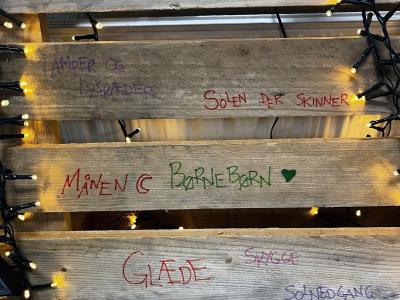 LAMPER OG
LYSKÆDER
SOLEN DER SKINNER
MÅNEN
BØRNEBØRN
GLÆDE
SKYGGE
SOLNEDGANG